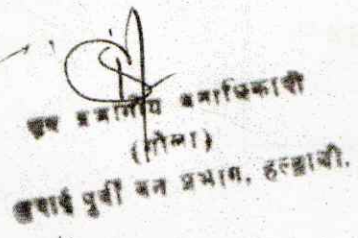 उप प्रभागीय वनाधिकारी
(गौला)
तराई पूर्वी वन प्रभाग, हल्द्वानी.